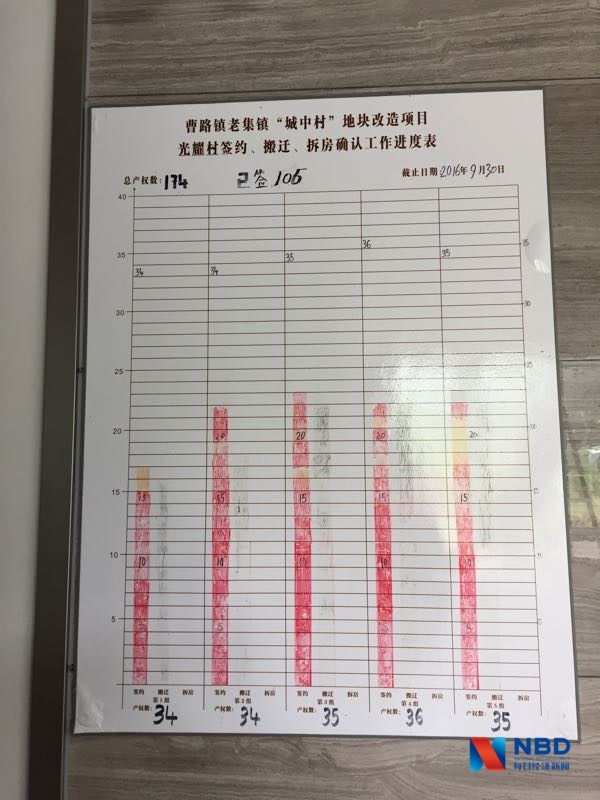 曹路镇老集镇“城中村”地块改造项目
光耀村签约、搬迁、拆房确认工作进度表
总产权数：174 已签 105 截止日期 2016年9月30日
40
35 36 35 35
35
34 34
30 30
25
20 20 20 20 20
15 15 15 15 15 15
10 10 10 10 10 10
5 5 5 5
签约 搬迁 拆房 签约 搬迁 拆房 签约 搬迁 拆房 签约 搬迁 拆房 签约 搬迁 拆房
第1组 第2组 第3组 第4组 第5组
产权数：34 产权数：34 产权数：35 产权数：36 产权数：35
NBD
每日经济新闻